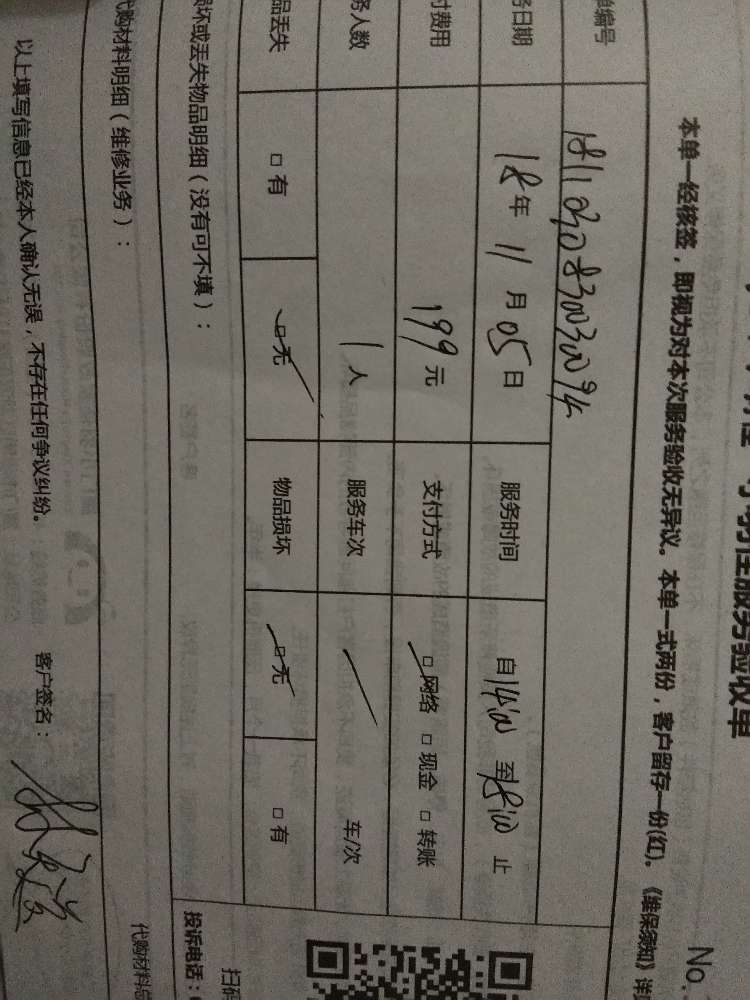 服务验收单
No.
本单一经核签，即视为对本次服务验收无异议。本单一式两份，客户留存一份(红)。《维保须知》详
单编号 1811030830030094
务日期 18年 11月 05日 服务时间 自14:00 至18:00 止
付费用 199元 支付方式 □网络 □现金 □转账
务人数 1人 服务车次 / 车/次
品丢失 □有 □无 物品损坏 □无 □有
损坏或丢失物品明细（没有可不填）：
扫码
投诉电话：
代购材料明细（维修业务）：
代购材料总
以上填写信息已经本人确认无误，不存在任何争议纠纷。 客户签名：